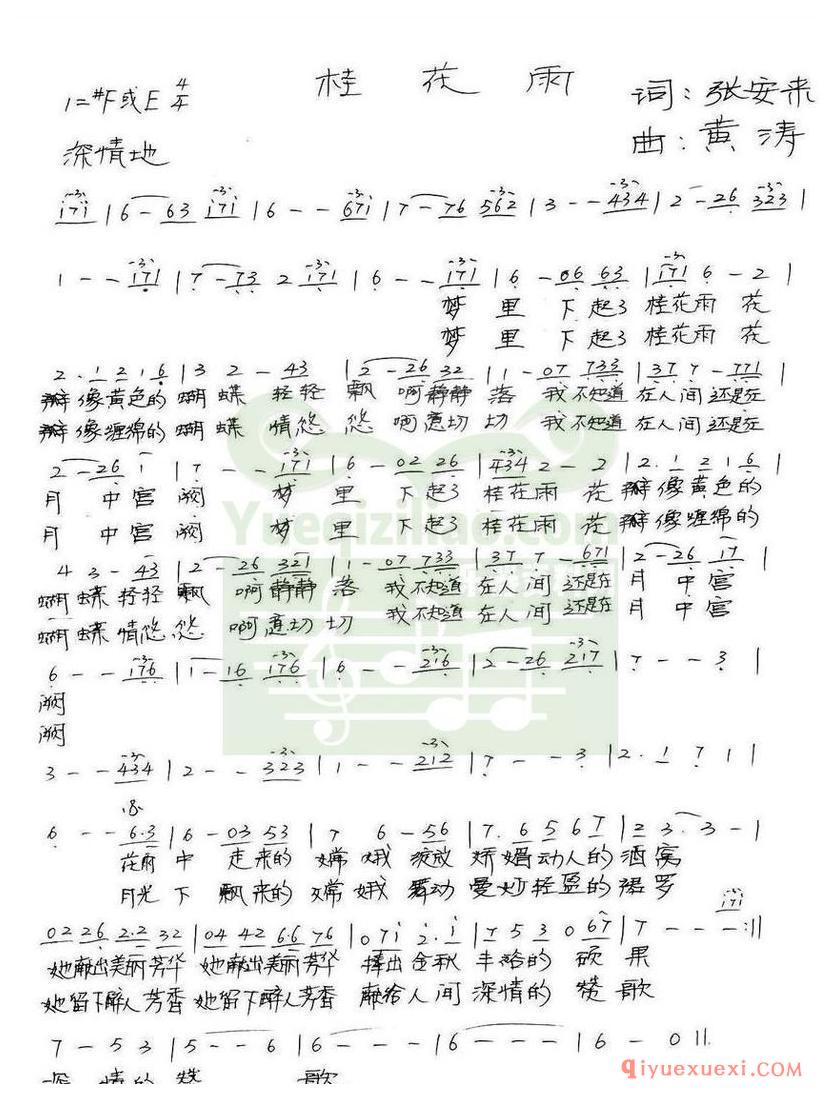 桂花雨
1=#F或E 4/4
词：张安来
曲：黄涛
深情地
i7i | 6 - 63 i7i | 6 - - 67i | 7 - 76 562 | 3 - - 434 | 2 - 26 323 |
1 - - i7i | 7 - 73 2 i7i | 6 - - i7i | 6 - 06 63 | i7i 6 - 2 |
梦里下起了桂花雨花
梦里下起了桂花雨花
2. 1 2 1 6 | 3 2 - 43 | 2 - 26 32 | 1 - 07 733 | 37 7 - 771 |
瓣像黄色的蝴蝶轻轻飘啊静静落我不知道在人间还是在
瓣像缠绵的蝴蝶情悠悠啊意切切我不知道在人间还是在
2 - 26 1 | 7 - - 171 | 6 - 02 26 | 434 2 - 2 | 2. 1 2 1 6 |
月中宫阙梦里下起了桂花雨花瓣像黄色的
月中宫阙梦里下起了桂花雨花瓣像缠绵的
Yueqiziliao.com
4 3 - 43 | 2 - 26 321 | 1 - 07 733 | 37 7 - 671 | 2 - 26 17 |
蝴蝶轻轻飘啊静静落我不知道在人间还是在月中宫
蝴蝶情悠悠啊意切切我不知道在人间还是在月中宫
6 - - 176 | 1 - 16 176 | 6 - - 216 | 2 - 26 217 | 7 - - 3 |
阙
阙
3 - - 434 | 2 - - 323 | 1 - - 212 | 7 - - 3 | 2. 1 7 1 |
6 - - 6.3 | 6 - 03 53 | 7 6 - 56 | 7. 6 5 6 7 | 2 3. 3 - |
花雨中走来的嫦娥绽放娇媚动人的酒窝
月光下飘来的嫦娥舞动曼妙轻盈的
02 26 2.2 32 | 04 42 6.6 76 | 0 7 i 2. i | 7 5 3 0 67 | 7 - - - i7i :||
她献出美丽芳华她献出美丽芳华捧出金秋丰硌的硕果
她留下醉人芳香她留下醉人芳香献给人间深情的赞歌
7 - 5 3 | 5 - - 6 | 6 - - - | 6 - - - | 6 - 0 ||
深情的赞歌
qiyuexuexi.com